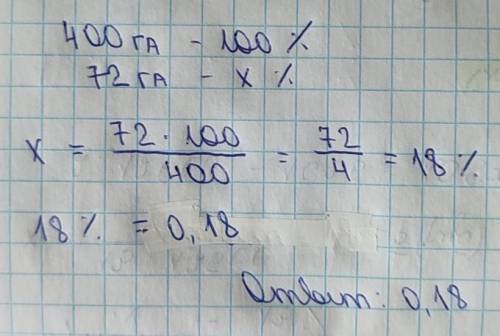 400 га - 100 %
72 га - х %
х = 72 · 100 / 400 = 72 / 4 = 18 %
18 % = 0,18
Ответ: 0,18